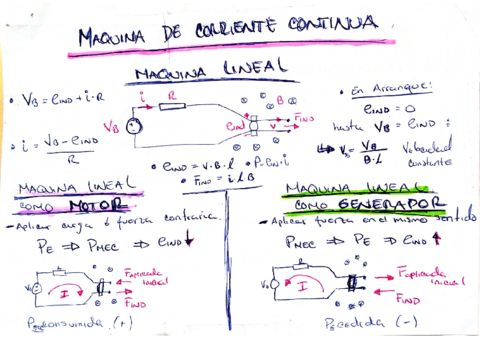 MAQUINA DE CORRIENTE CONTINUA
MAQUINA LINEAL
• VB = eIND + i·R
• i = VB - eIND / R
i
R
B
VB
eind
v
FIND
• eIND = v·B·l
• P = EIN·i
• FIND = i l B
• En Arranque:
eIND = 0
hasta VB = eIND i
↳ vs = VB / B·l Velocidad constante
MAQUINA LINEAL
COMO MOTOR
- Aplicar carga ó fuerza contraria.
PE ⇒ PMEC ⇒ eIND ↓
R
VB
I
Faplicada
inicial
FIND
PE consumida (+)
MAQUINA LINEAL
COMO GENERADOR
- Aplicar fuerza en el mismo sentido
PMEC ⇒ PE ⇒ eIND ↑
R
VB
I
Faplicada
inicial
FIND
PE cedida (-)